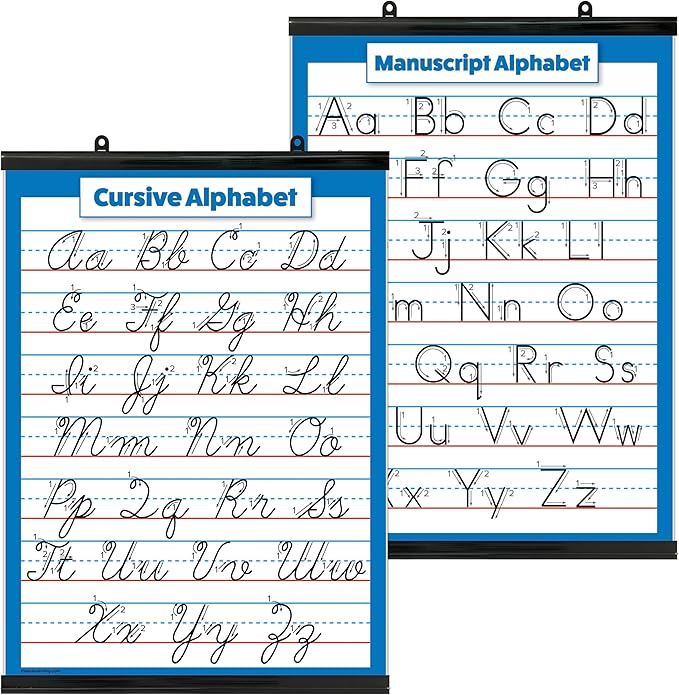 Cursive Alphabet
Aa Bb Cc Dd
Ee Ff Gg Hh
Ii Jj Kk Ll
Mm Nn Oo
Pp Qq Rr Ss
Tt Uu Vv Ww
Xx Yy Zz
Manuscript Alphabet
Aa Bb Cc Dd
Ff Gg Hh
Jj Kk Ll
m Nn Oo
Qq Rr Ss
Uu Vv Ww
x Yy Zz